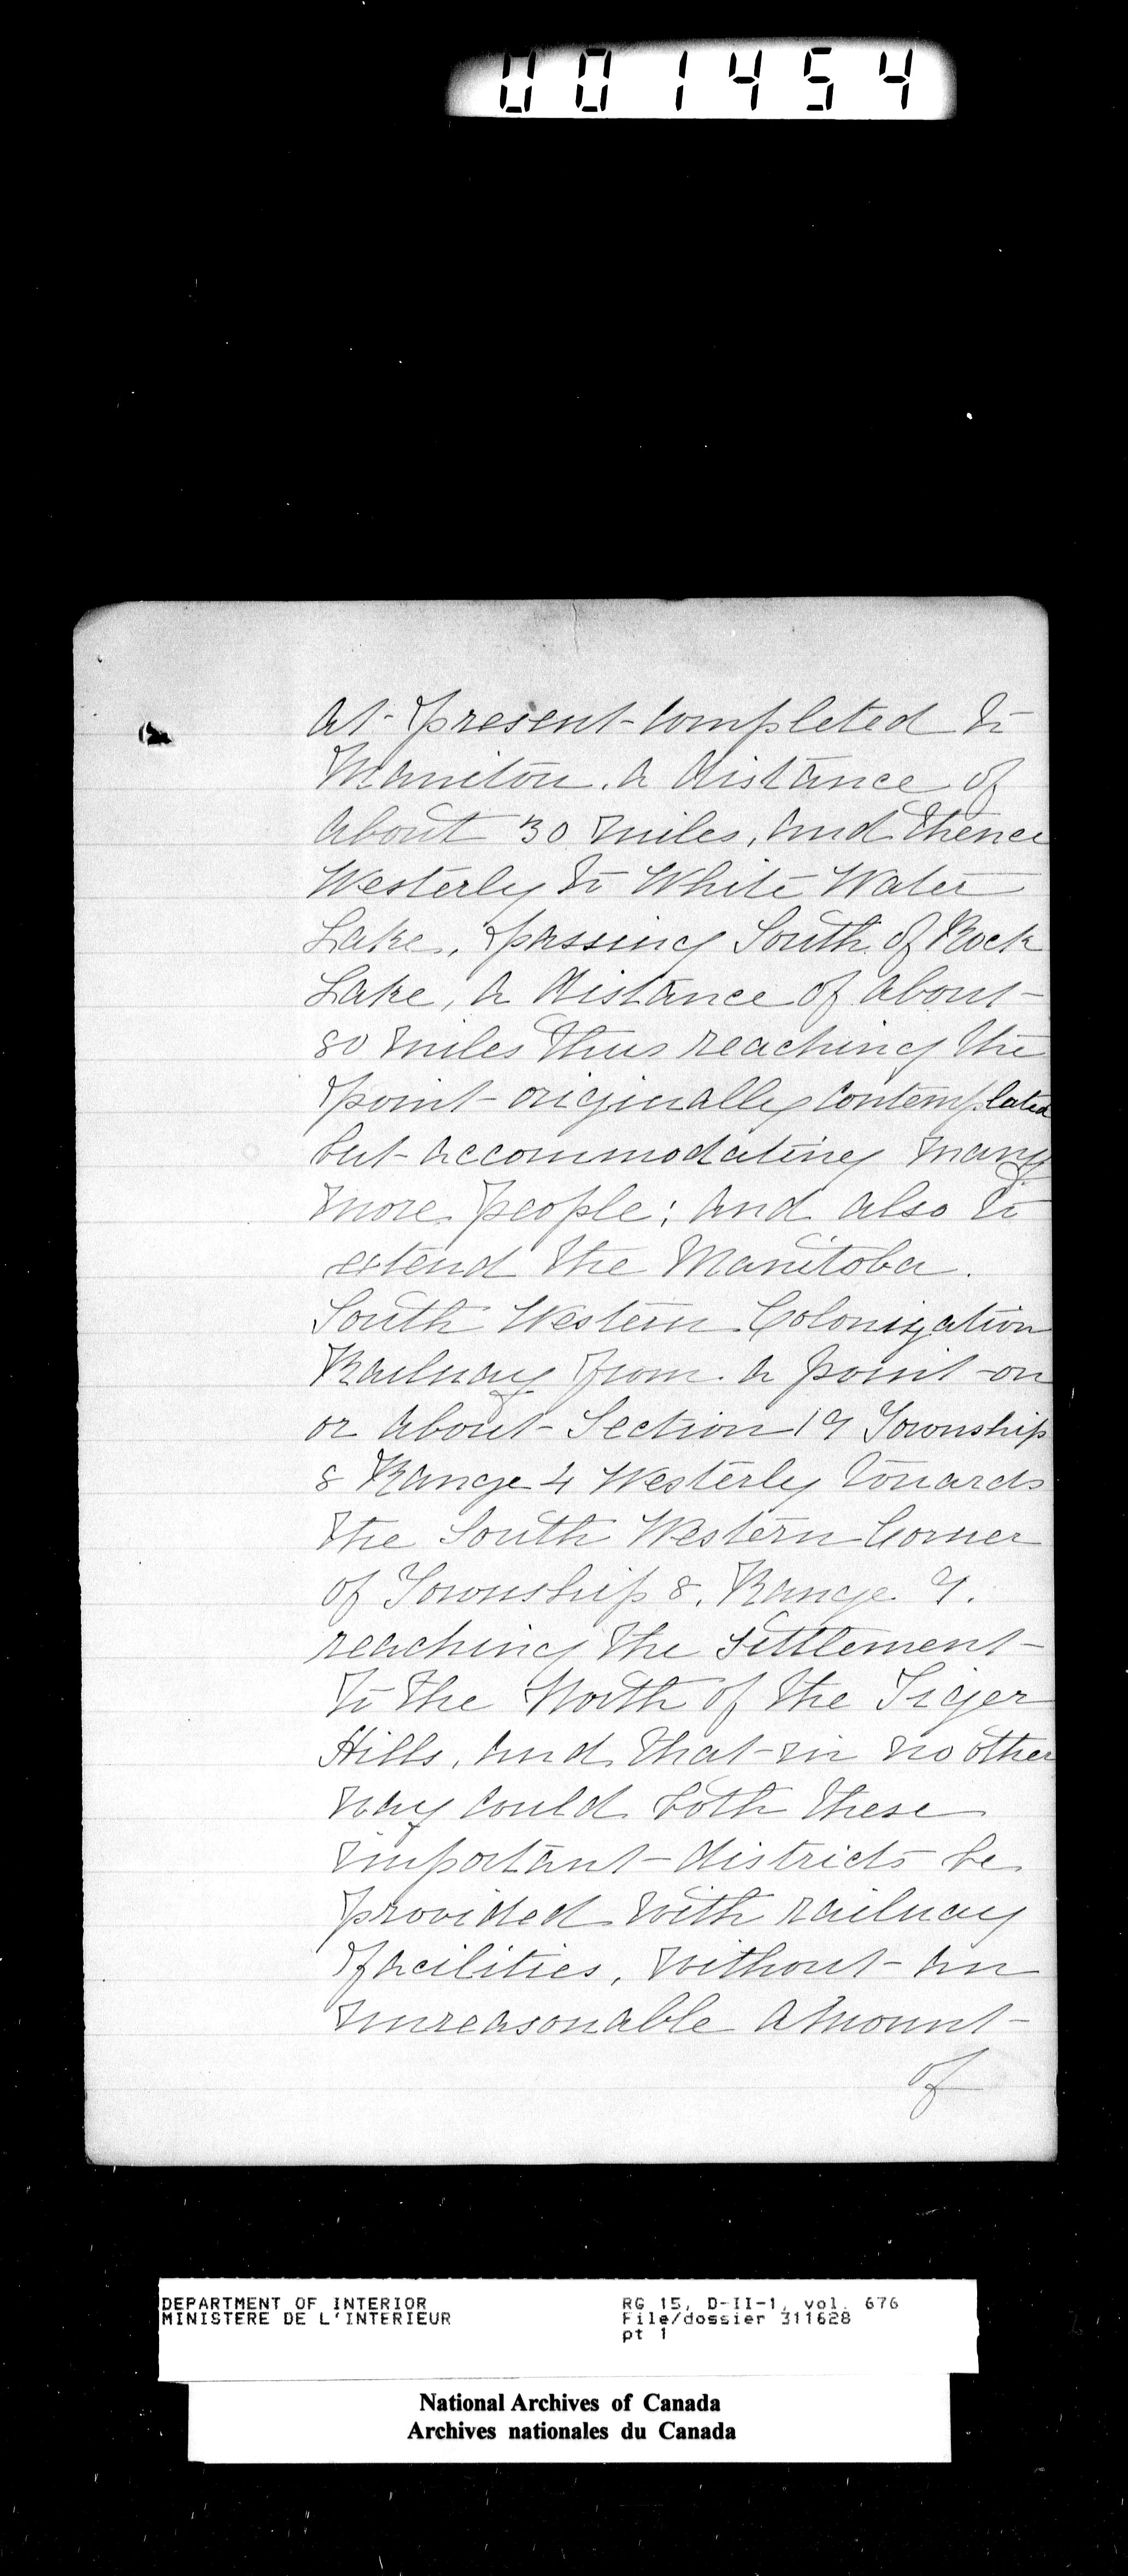 001454
at present completed to
Manitou. a distance of
about 30 miles, and thence
Westerly to White Water
Lake, passing South of Rock
Lake, a distance of about
80 miles thus reaching the
point originally contemplated
but accommodating many
more people; and also to
extend the Manitoba.
South Western Colonization
Railway from a point on
or about Section 19 Township
8 Range 4 Westerly towards
the South Western Corner
of Township 8. Range 9.
reaching the Settlement
to the North of the Tiger
Hills, and that in no other
way could both these
important districts be
provided with railway
facilities, without an
unreasonable amount
of
DEPARTMENT OF INTERIOR
MINISTERE DE L'INTERIEUR
RG 15, D-II-1, vol. 676
File/dossier 311628
pt 1
National Archives of Canada
Archives nationales du Canada